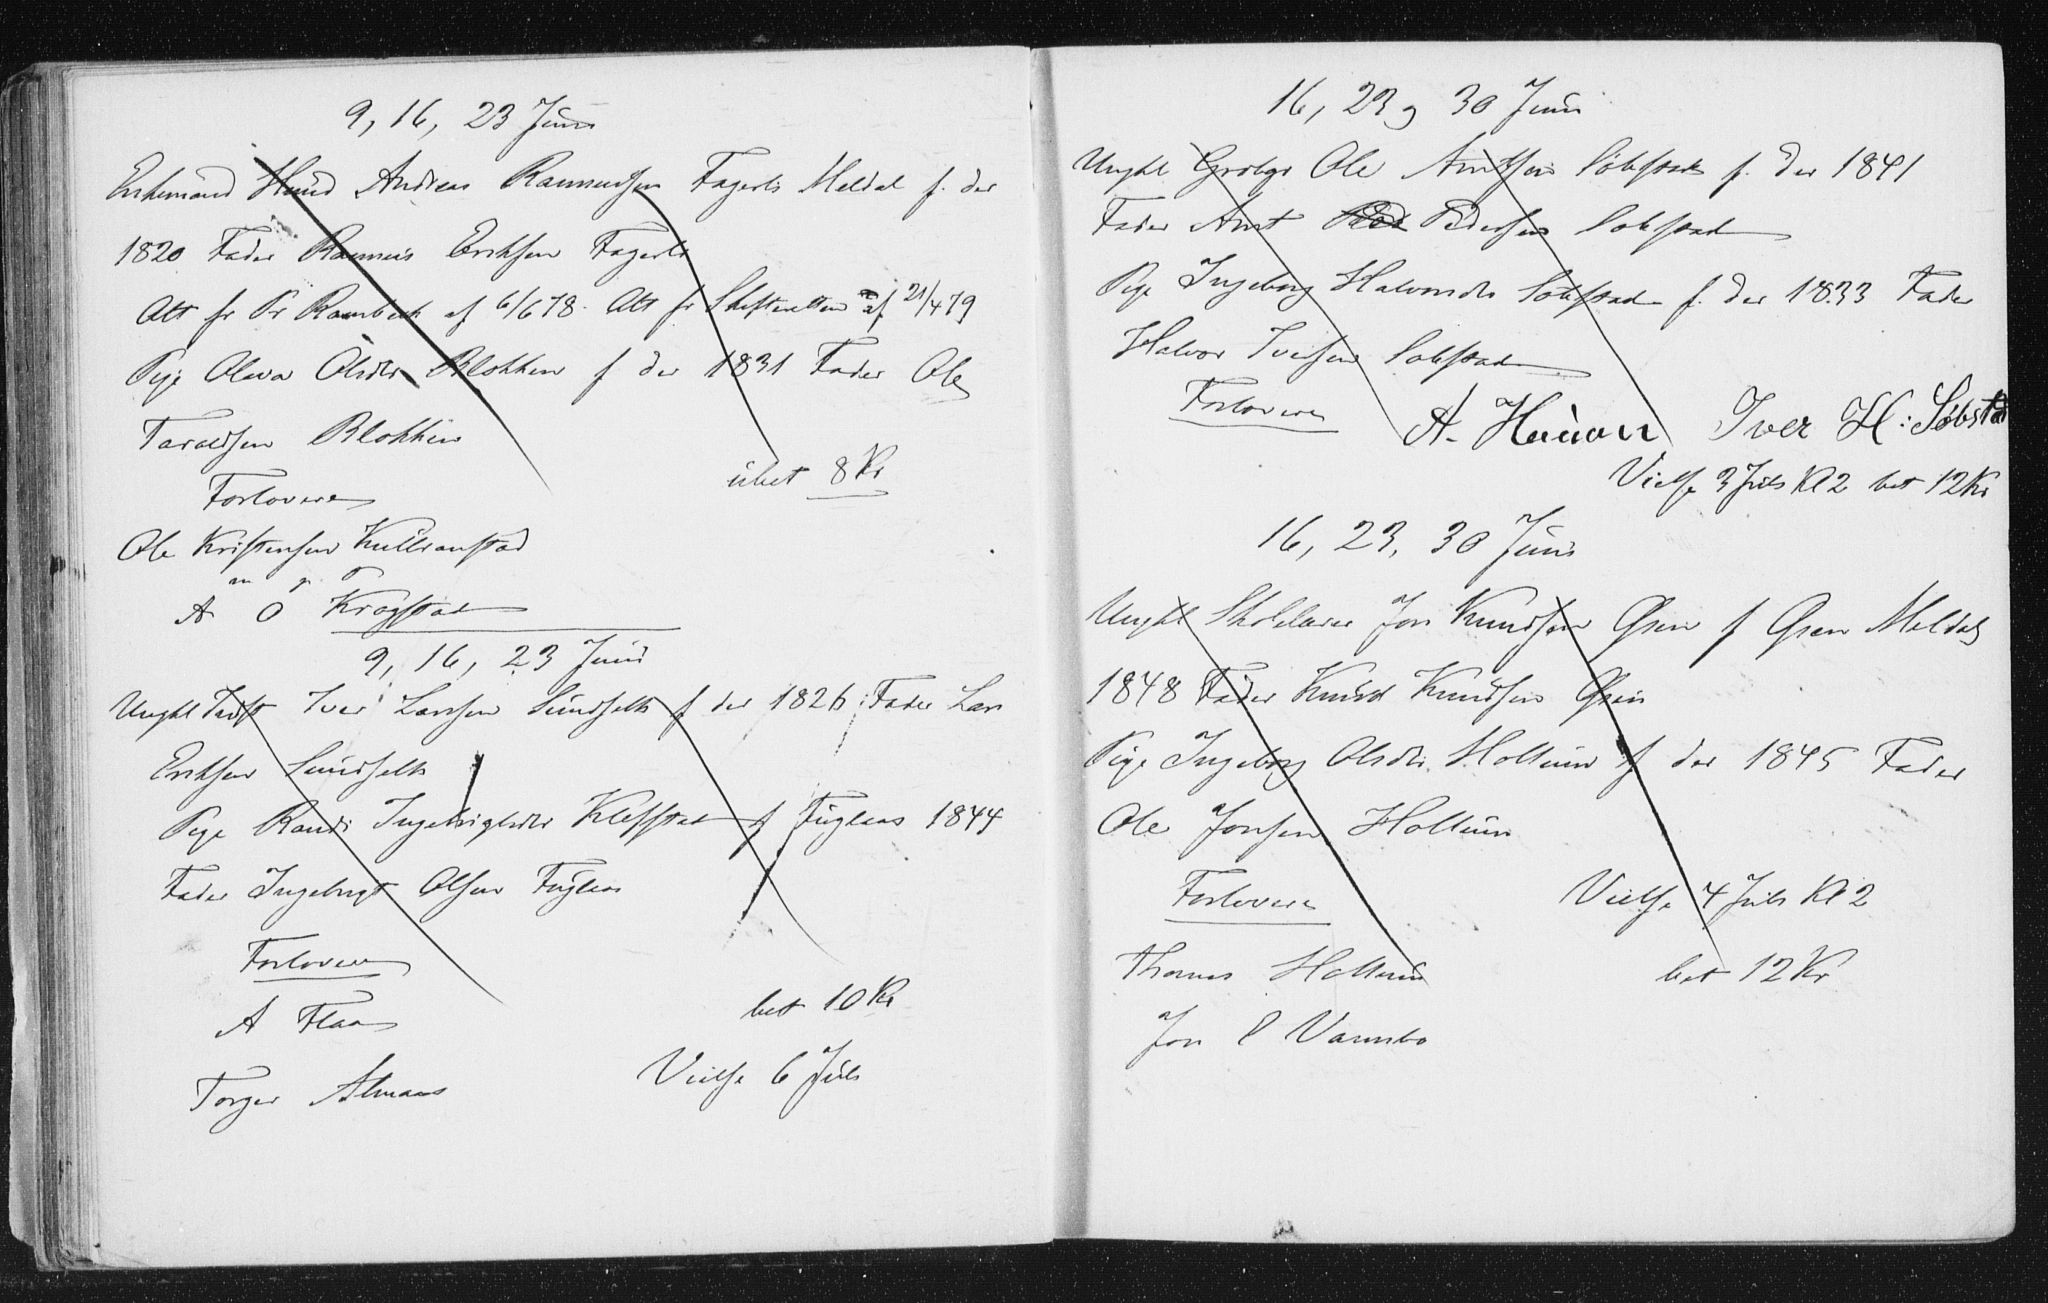 9, 16, 23 Juni
Enkemand Huusmd Andreas Rasmussen Fagerli Meldal f. der
1820 Fader Rasmus Eriksen Fagerli
Att fr Pr Rambech af 6/6 78. Att fr Skifteretten af 21/4 79
Pige Olava Olsdtr Blokken f der 1831 Fader Ole
Taraldsen Blokken
ubet 8 Kr
Forlovere
Ole Kristensen
m p
A O Krogstad
9, 16, 23 Juni
Ungkl Iver Larsen Sundseth f der 1826 Fader Lars
Eriksen Sundseth
Pige Randi Ingebrigtsdtr Klefstad f Fuglaas 1844
Fader Ingebrigt Olsen Fuglaas
Forlovere
A Flaa
bet 10 Kr
Torger Almaas
Vielse 6 Juli
16, 23, 30 Juni
Ungkl Ole Arntsen Sølstad f. der 1841
Fader Arnt Pedersen Sobstad
Pige Ingeborg Halvorsdtr Sobstad f. der 1833 Fader
Halvor Iversen Sobstad
Forlovere
A. Hauan Iver H: Søbstad
Vielse 3 Juli Kl 2 bet 12 Kr
16, 23, 30 Juni
Ungkl Skolelærer Jon Knudsen Gren f Gren Meldal
1848 Fader Knud Knudsen Gren
Pige Ingeborg Olsdtr Holtum f der 1845 Fader
Ole Jonsen Holtum
Forlovere
Vielse 4 Juli Kl 2
Thomas Holtum
bet 12 Kr
Jon Varmbo